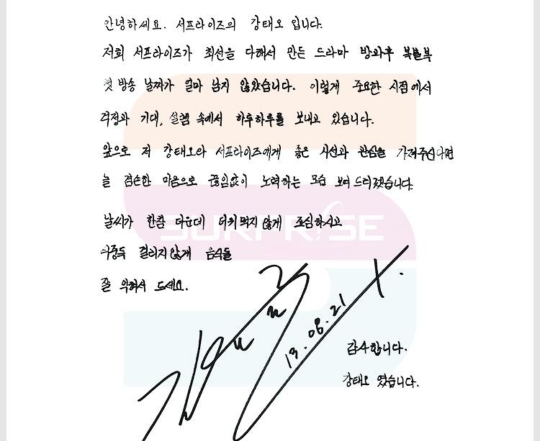 안녕하세요. 서프라이즈의 강태오 입니다.
저희 서프라이즈가 최선을 다해서 만든 드라마 방과후 복불복
첫 방송 날짜가 얼마 남지 않았습니다. 이렇게 중요한 시점에서
걱정과 기대, 설렘 속에서 하루하루를 보내고 있습니다.
앞으로 저 강태오와 서프라이즈에게 좋은 시선과 관심을 가져주신다면
늘 겸손한 마음으로 끊임없이 노력하는 모습 보여 드리겠습니다
날씨가 한층 더운데 더위먹지 않게 조심하시고
SURPRISE
식중독 걸리지않게 음식을
잘 익혀서 드세요.
13.08.21
감사합니다.
강태오 였습니다.